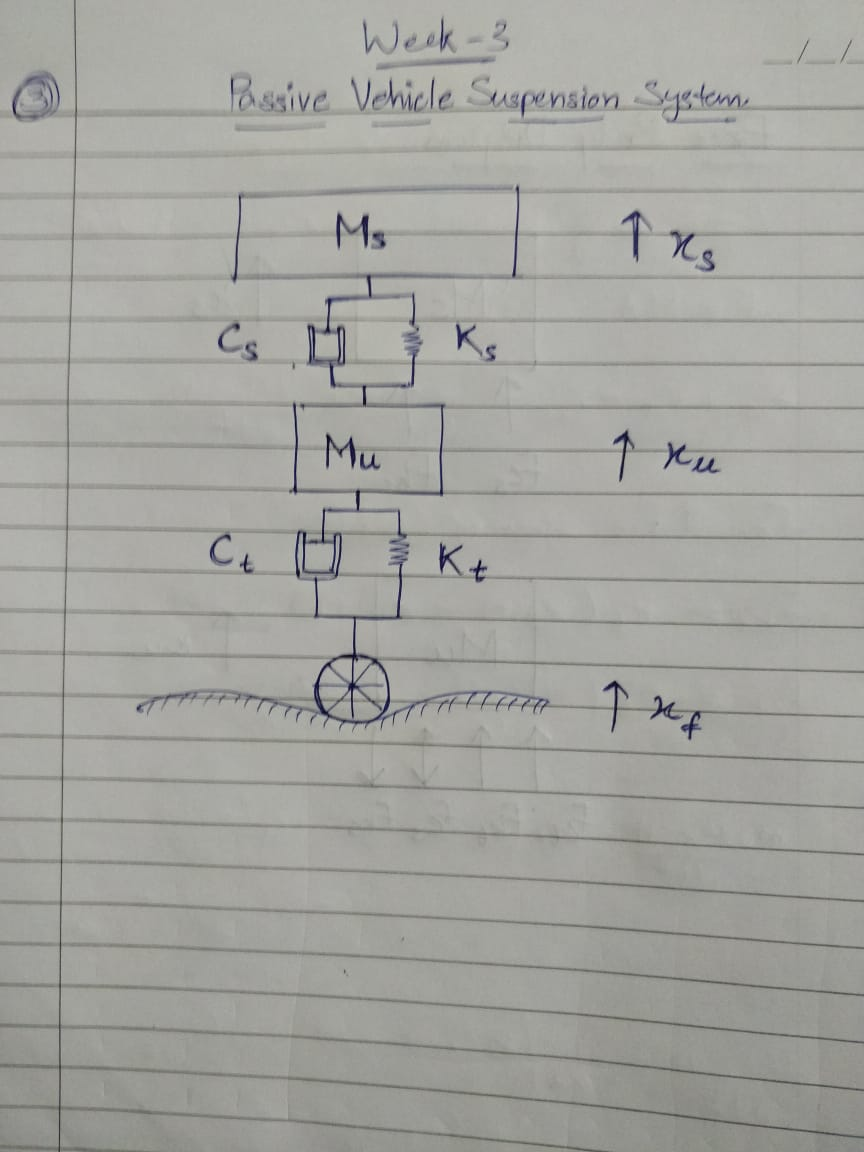 Week-3
_/_/
③ Passive Vehicle Suspension System.
Ms ↑ xs
Cs Ks
Mu ↑ xu
Ct Kt
↑ xf